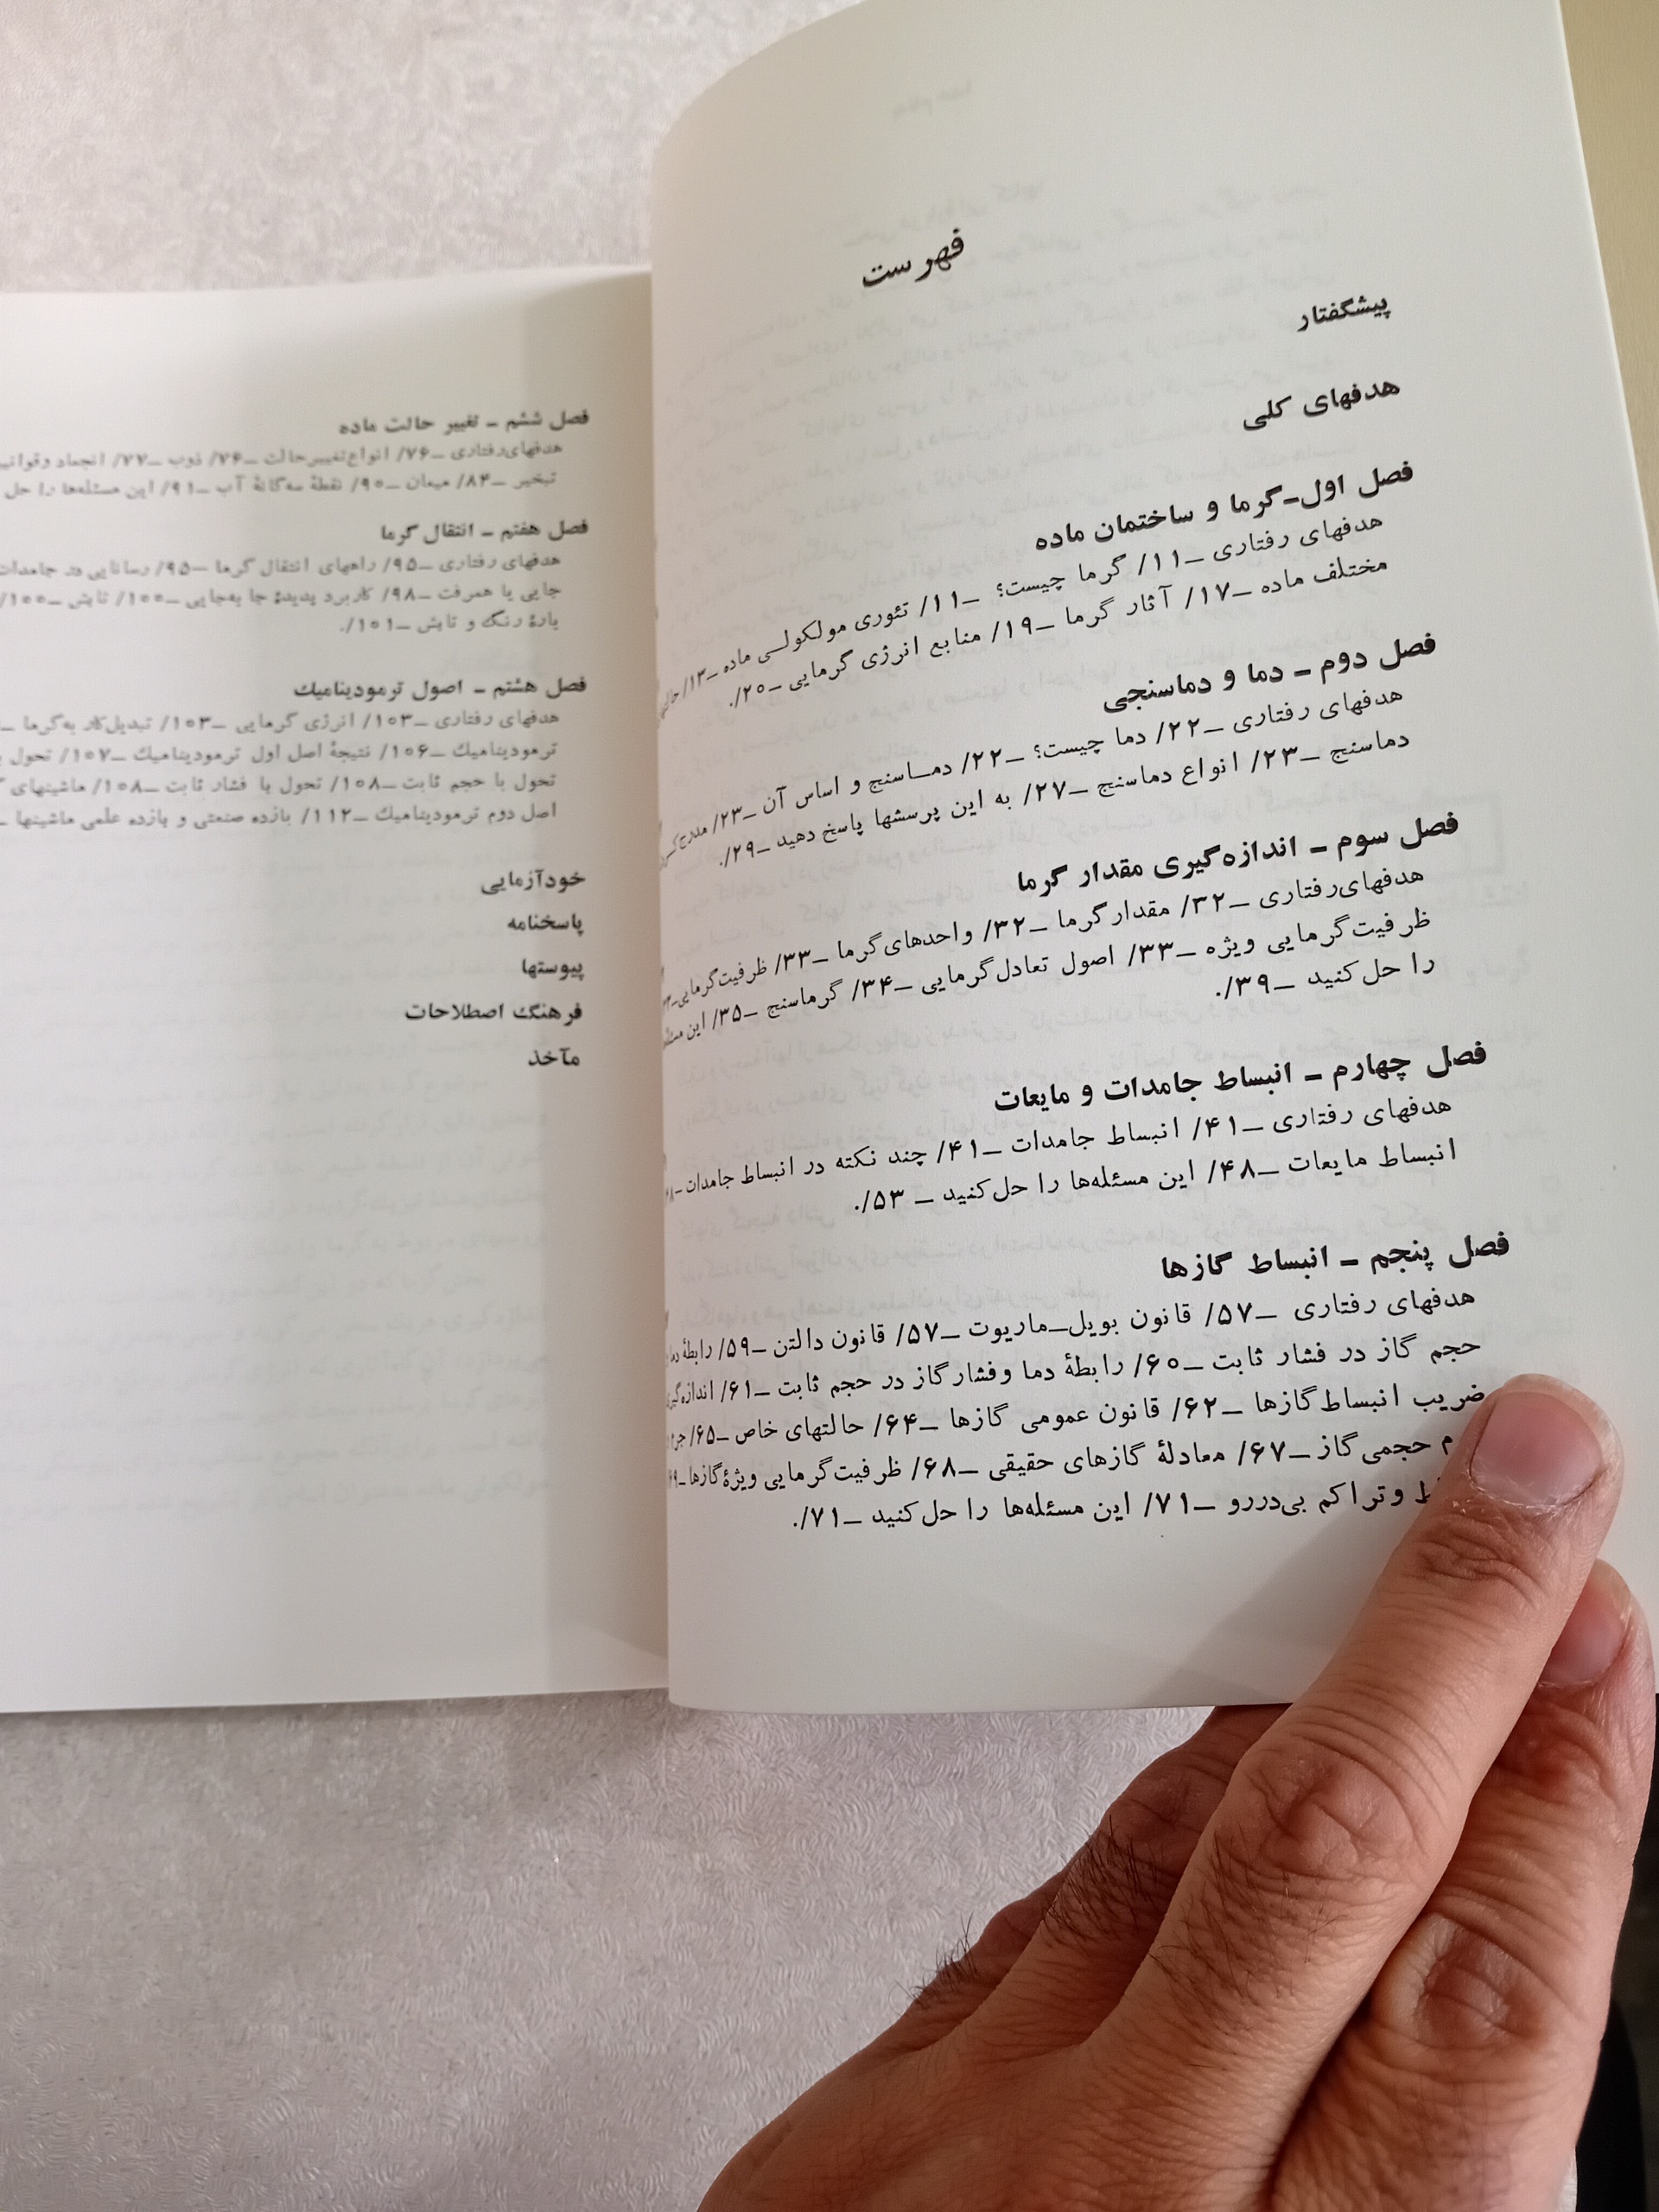 فهرست
پیشگفتار
هدفهای کلی
فصل اول_گرما و ساختمان ماده
هدفهای رفتاری _۱۱/ گرما چیست؟ _۱۱/ تئوری مولکولی ماده _۱۳/
مختلف ماده _۱۷/ آثار گرما _۱۹/ منابع انرژی گرمایی _۲۰/.
فصل دوم _ دما و دماسنجی
هدفهای رفتاری _۲۲/ دما چیست؟ _۲۲/ دماسنج و اساس آن _۲۳/
دماسنج _۲۳/ انواع دماسنج _۲۷/ به این پرسشها پاسخ دهید _۲۹/.
فصل سوم _ اندازه‌گیری مقدار گرما
هدفهای‌رفتاری _۳۲/ مقدار گرما _۳۲/ واحدهای گرما _۳۳/ ظرفیت‌گرمایی
ظرفیت‌گرمایی ویژه _۳۳/ اصول تعادل گرمایی _۳۴/ گرماسنج _۳۵/ این
را حل‌کنید _۳۹/.
فصل چهارم _ انبساط جامدات و مایعات
هدفهای رفتاری _۴۱/ انبساط جامدات _۴۱/ چند نکته در انبساط جامدات
انبساط مایعات _۴۸/ این مسئله‌ها را حل‌کنید _ ۵۳/.
فصل پنجم _ انبساط گازها
هدفهای رفتاری _۵۷/ قانون بویل_ماریوت _۵۷/ قانون دالتن _۵۹/ رابطهٔ
حجم گاز در فشار ثابت _۶۰/ رابطهٔ دما وفشارگاز در حجم ثابت _۶۱/
ضریب انبساط گازها _۶۲/ قانون عمومی گازها _۶۴/ حالتهای خاص _۶۵/
حجمی گاز _۶۷/ معادلهٔ گازهای حقیقی _۶۸/ ظرفیت‌گرمایی ویژهٔ گازها
وتراکم بی‌دررو _۷۱/ این مسئله‌ها را حل‌کنید _۷۱/.
فصل ششم _ تغییر حالت ماده
هدفهای‌رفتاری _۷۶/ انواع تغییرحالت _۷۶/ ذوب _۷۷/ انجماد
تبخیر _۸۴/ میعان _۹۰/ نقطهٔ سه‌گانهٔ آب _۹۱/ این مسئله‌ها را حل
فصل هفتم _ انتقال گرما
هدفهای رفتاری _۹۵/ راههای انتقال گرما _۹۵/ رسانایی در جامدات
جایی یا همرفت _۹۸/ کاربرد پدیدهٔ جا به‌جایی _۱۰۰/ تابش _۱۰۰/
بارهٔ رنگ و تابش _۱۰۱/.
فصل هشتم _ اصول ترمودینامیک
هدفهای رفتاری _۱۰۳/ انرژی گرمایی _۱۰۳/ تبدیل‌کار به‌گرما
ترمودینامیک _۱۰۶/ نتیجهٔ اصل اول ترمودینامیک _۱۰۷/ تحول
تحول با حجم ثابت _۱۰۸/ تحول با فشار ثابت _۱۰۸/ ماشینهای
اصل دوم ترمودینامیک _۱۱۲/ بازده صنعتی و بازده علمی ماشینها
خودآزمایی
پاسخنامه
پیوستها
فرهنگ اصطلاحات
مآخذ